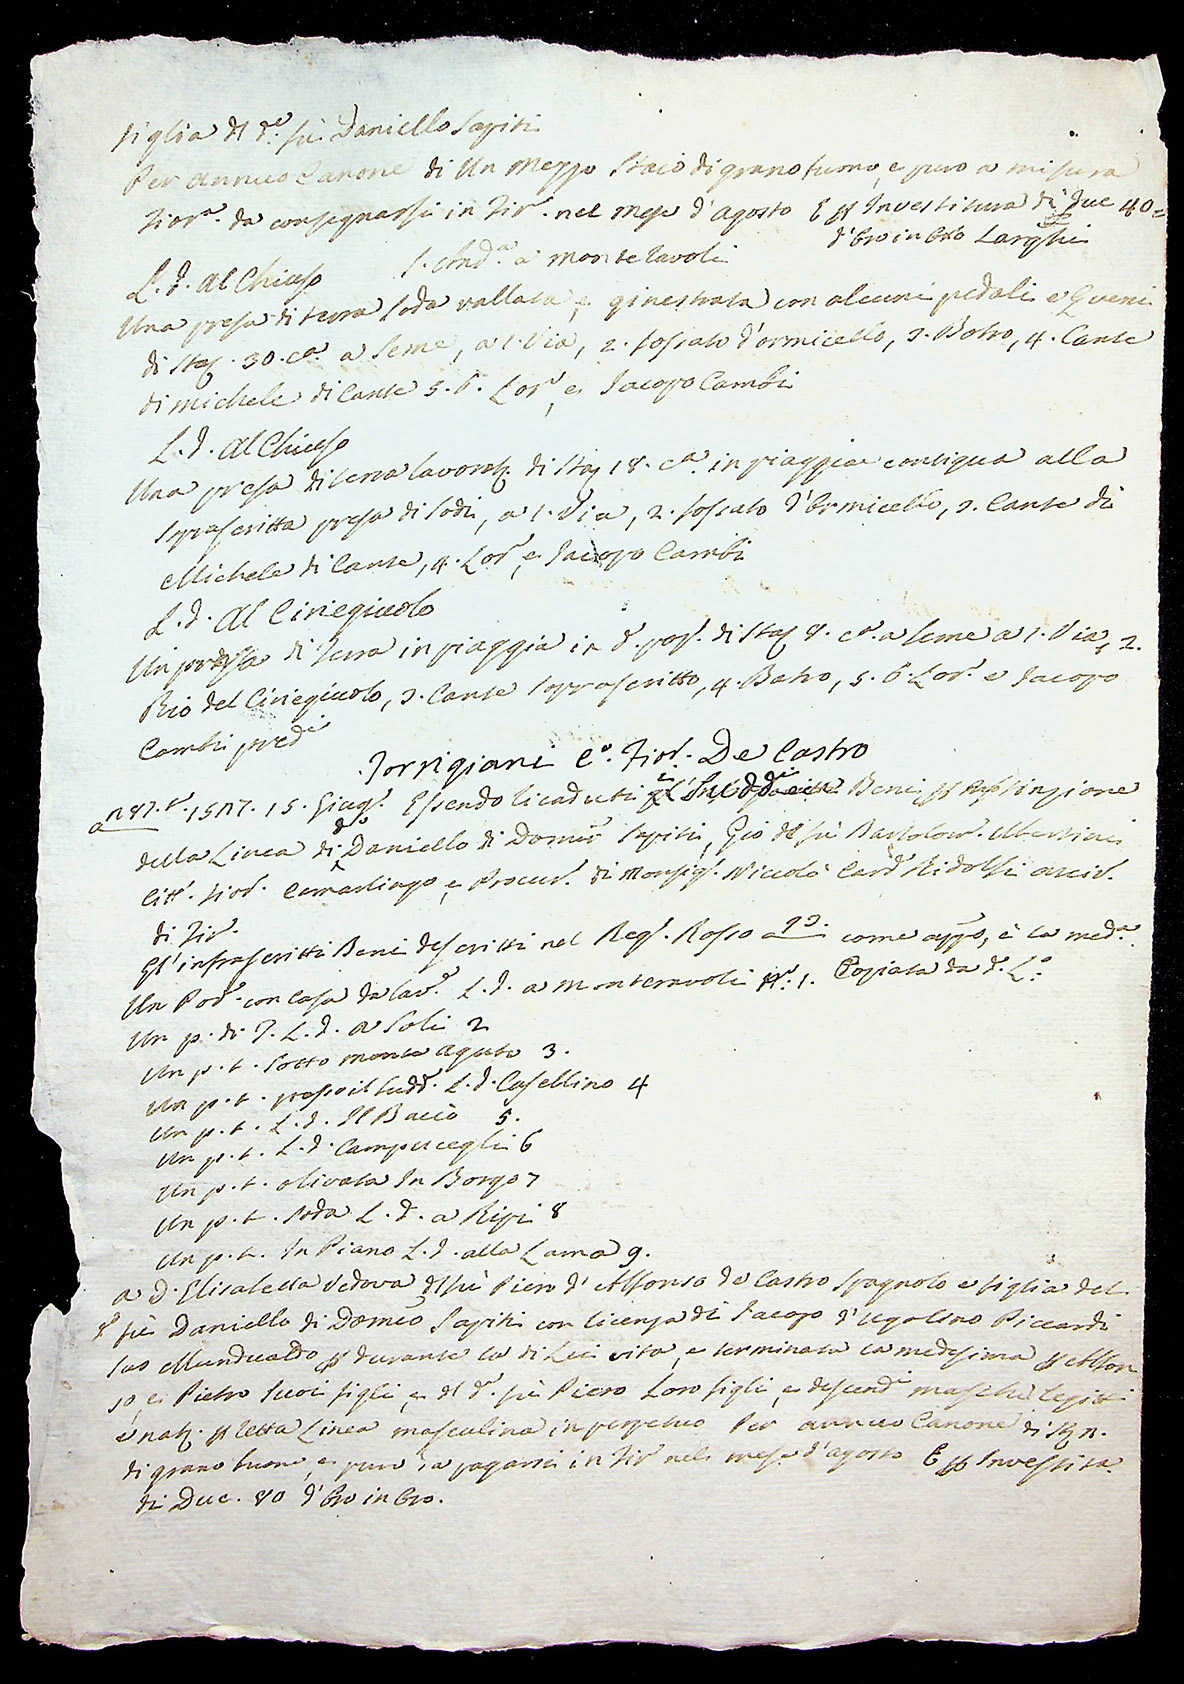 figlia d̄l d.º fù Daniello Sapiti
Per annuo Canone di Un mezzo Staio di grano buono, e puro a misura
Fior.ª da consegnarsi in Fir.ᵉ nel mese d'Agosto E p Investitura di Duc 40=
d'Oro in Oro Larghi
L. d. Al Chiuso a monte ravoli
Una presa di terra soda vallata, e ginestrata con alcuni pedali e Querci
di Sta. 30. c.ª a seme, a 1. Via, 2. fossato d'ormicello, 3. Botro, 4. Cante
di michele di Cante 5. 6. Lor.º, e Jacopo Cambi
L. d. Al Chiuso
Una presa di terra lavorat. di Sta 18. c.ª in piaggia contigua alla
soprascritta presa di sodi, a 1. Via, 2. fossato d'Ormicello, 3. Cante di
Michele di Cante, 4. Lor.º, e Jacopo Cambi
L. d. Al Ciriegiuolo
Un presa di terra in piaggia in d.º pop.º di Sta 8. c.ª a seme a 1. Via, 2.
Rio del Ciriegiuolo, 3. Cante soprascritto, 4. Botro, 5. 6. Lor.º e Jacopo
Cambi pred.ⁱ
Torrigiani C.º Fior. De Castro
a 87.t. 1517. 15. Giug.º Essendo ricaduti Beni p
della Linea di d.º Daniello di Domco Sapiti, Gio d̄l fù Bartolom. Albertini
Citt. fior. Camarlingo, e Procur. di Monsig.ʳ Niccolò Card. Ridolfi arciv.
di Fir.
Gl'infrascritti Beni descritti nel Reg.º Rosso a 93. come app.º, è la med.ª
Un Pod.ᵉ con casa da lav.ᵉ L. d. a Monteravoli n.º 1. Copiata da d.º L.º
Un p. di T. L. d. a Soli 2
Un p. t. Sotto monte aguto 3.
Un p. t. presso il sudd.º L. d. Casellino 4
Un p. t. L. d. Il Bacio 5.
Un p. t. L. d. Campucegli 6
Un p. t. olivata In Borgo 7
Un p. t. soda L. d. a Ripi 8
Un p. t. In Piano L. d. alla Lama 9.
a D. Elisabetta Vedova d̄l fù Piero d'Alfonso de Castro Spagnolo e figlia del
d.º fù Daniello di Domco Sapiti con licenza di Jacopo d'Ugolino Piccardi
suo Mundualdo p durante la di Lei vita, e terminata la medesima p Alfon
so, e Pietro suoi figli, e d̄l d.º fù Piero Loro figli, e descend.ⁱ maschi legitti
e nat. p retta Linea masculina in perpetuo Per annuo Canone di
di grano buono, e puro da pagarsi in Fir.ᵉ nel mese d'agosto E p Investita
di Duc. 80 d'Oro in Oro.